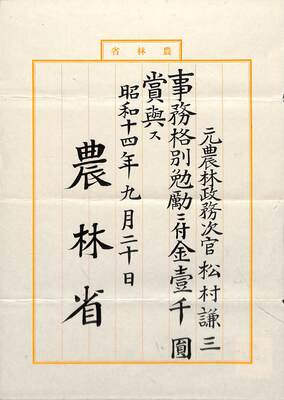 省林農
元農林政務次官 松村謙三
事務格別勉勵ニ付金壹千圓
賞與ス
昭和十四年九月二十日
農林省